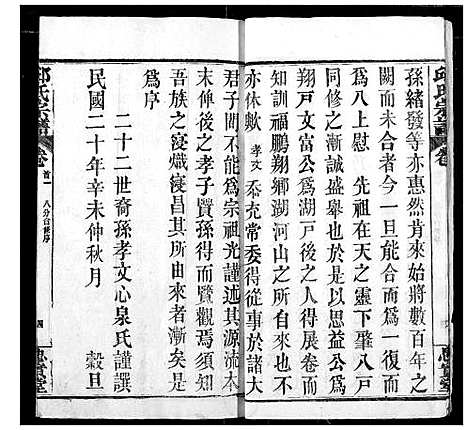 邱氏宗譜 卷
孫緒發等亦惠然肯來始將數百年之
闕而未合者今一旦能合而爲一復而
爲八上慰 先祖在天之靈下肇八戸
合修之漸誠盛舉也於是以思益公爲
翔戸文富公爲湖戸後之人得展卷而
知訓福鵬翔鄉湖河山之所由分不
亦休歟 孝文 忝充常委得從事於諸大
君子間不能爲宗祖光謹述其源流本
末俾後之孝子賢孫得而覽觀焉須知
吾族之寖熾寖昌其所由來者漸矣是
爲序
二十二世裔孫孝文心泉氏謹譔
民國二十年辛未仲秋月 穀旦
邱氏宗譜 卷首一 八分合修序 四